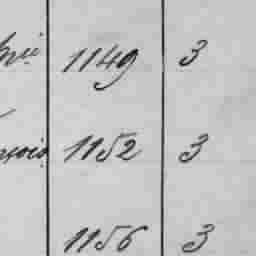 1149 3
1152 3
1156 3